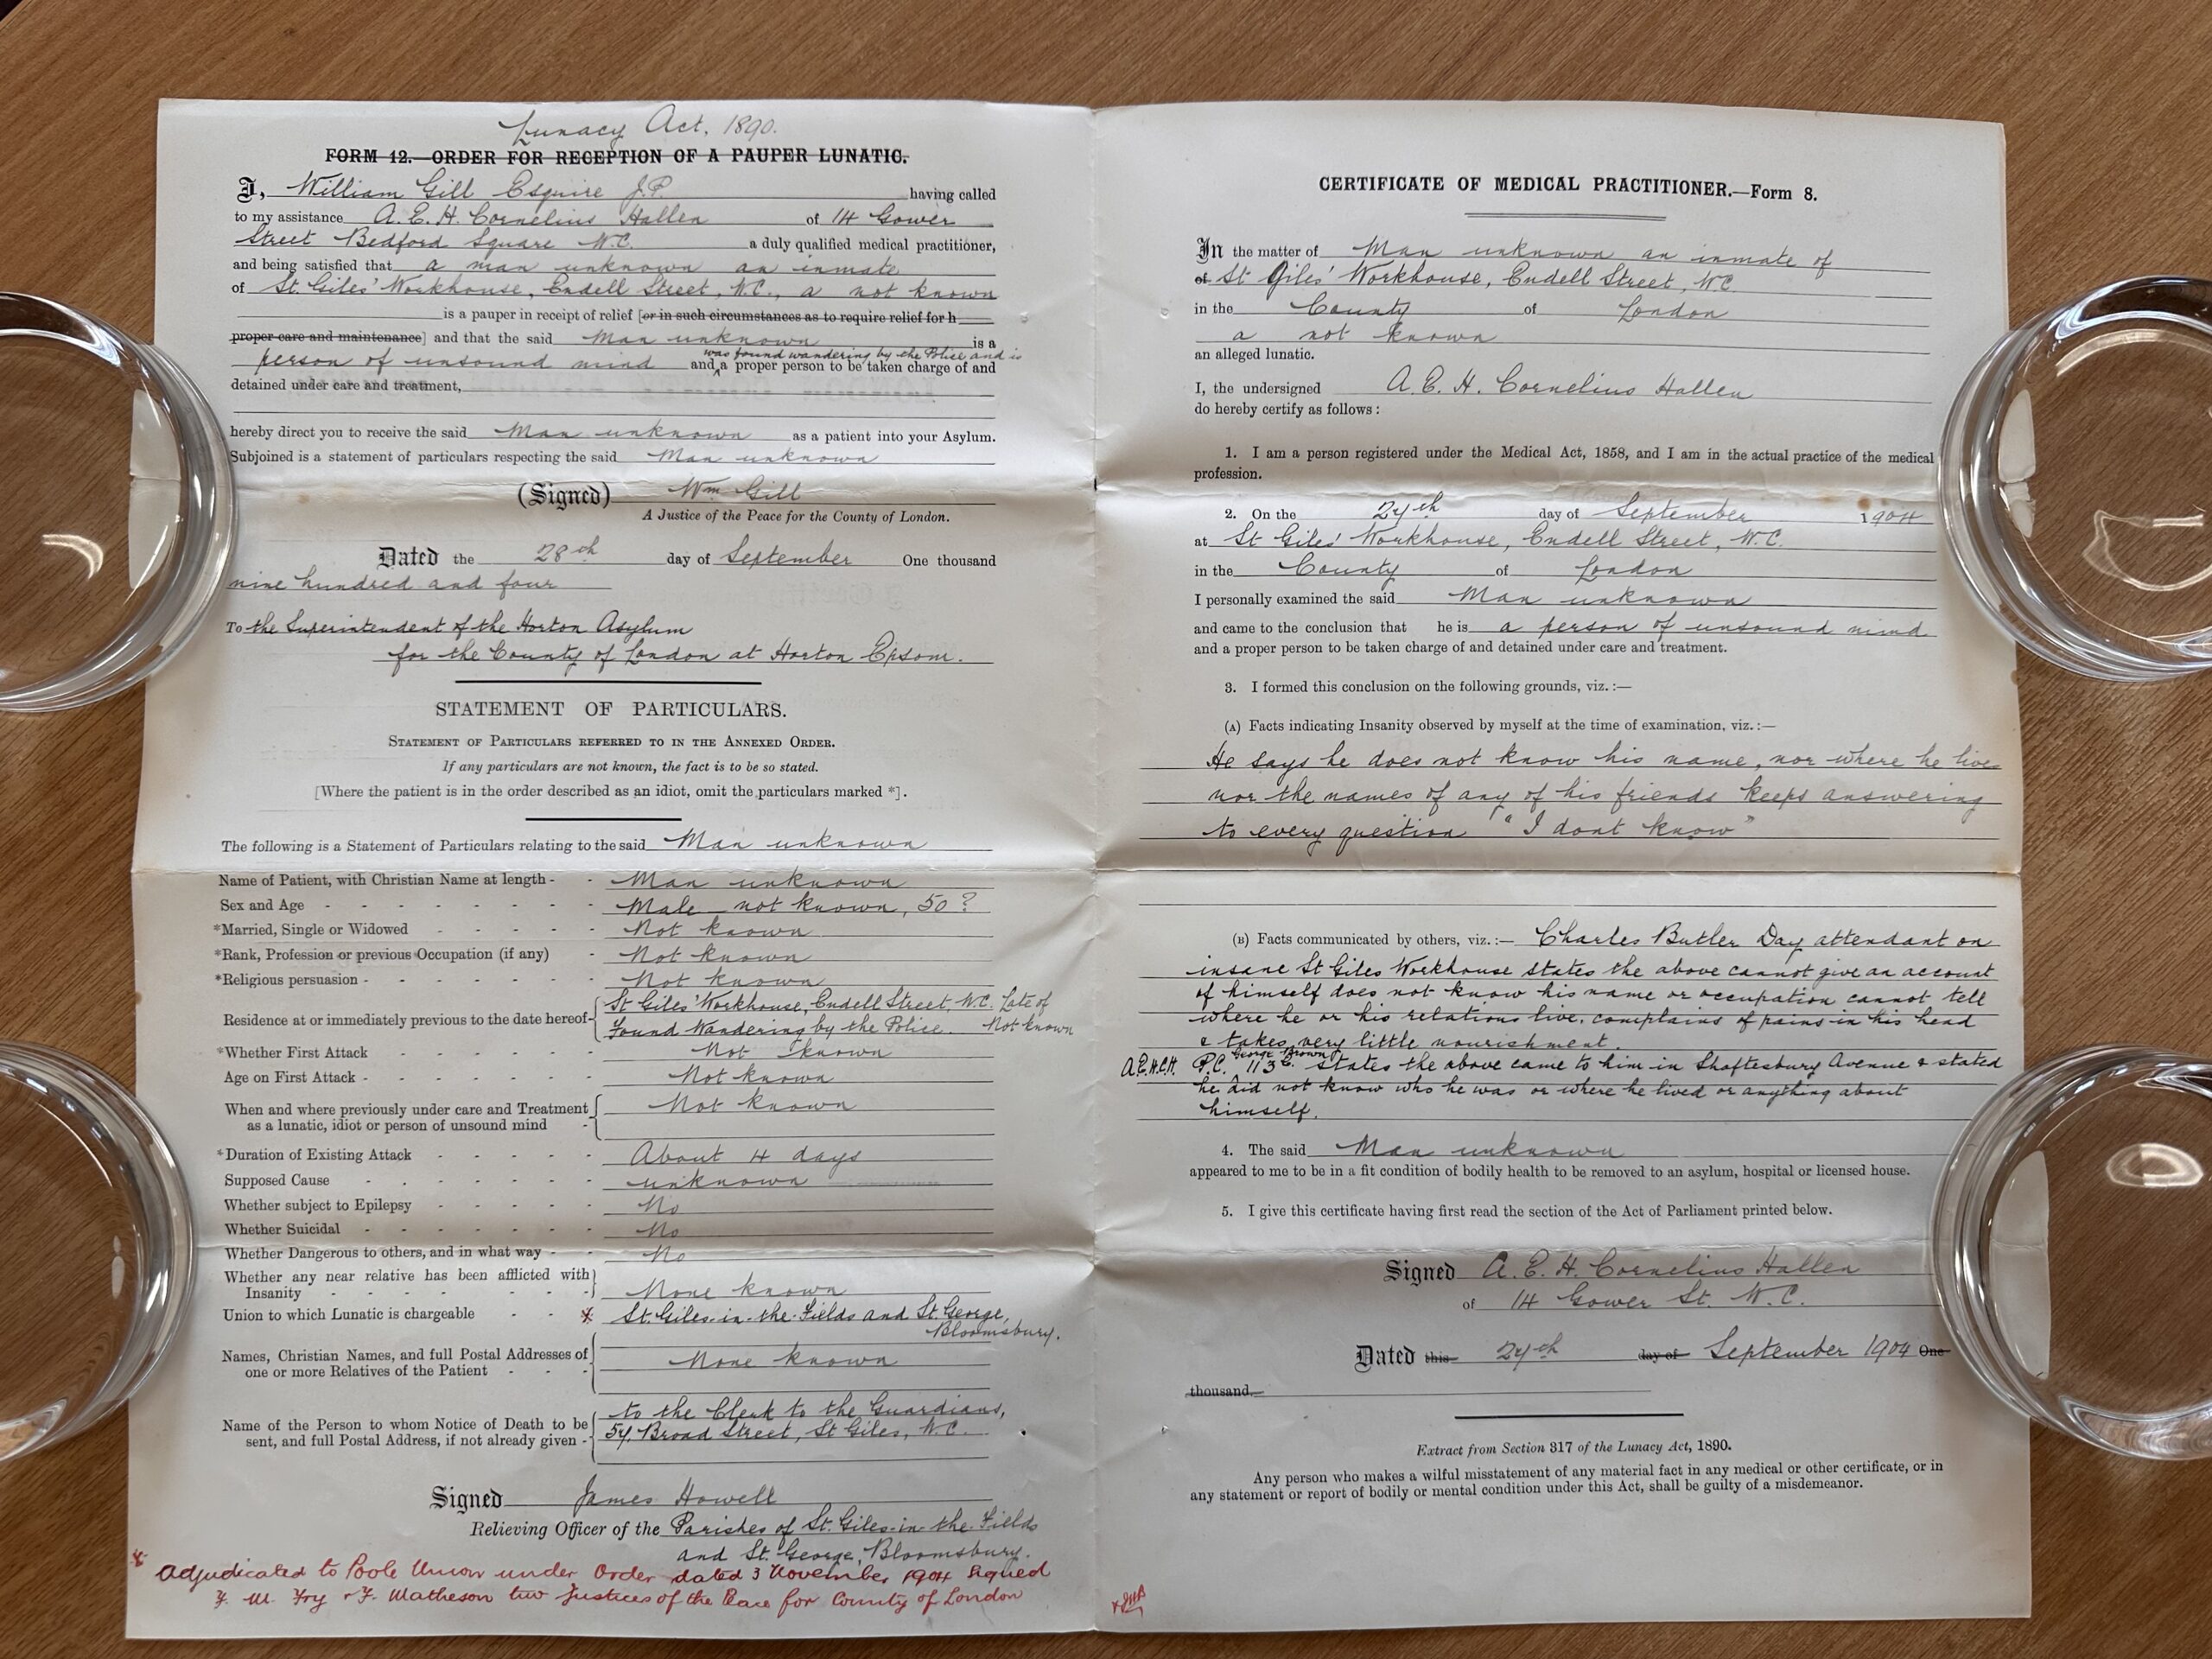 Lunacy Act, 1890.
FORM 12.—ORDER FOR RECEPTION OF A PAUPER LUNATIC.
I, William Gill Esquire J.P. having called
to my assistance A. E. H. Cornelius Hallen of 14 Gower
Street Bedford Square W.C. a duly qualified medical practitioner,
and being satisfied that a man unknown an inmate
of St. Giles' Workhouse, Endell Street, W.C., a not known
is a pauper in receipt of relief [or in such circumstances as to require relief for h
proper care and maintenance] and that the said Man unknown is a
was found wandering by the Police and is
person of unsound mind and a proper person to be taken charge of and
detained under care and treatment,
hereby direct you to receive the said Man unknown as a patient into your Asylum.
Subjoined is a statement of particulars respecting the said Man unknown
(Signed) Wm Gill
A Justice of the Peace for the County of London.
Dated the 28th day of September One thousand
nine hundred and four
To the Superintendent of the Horton Asylum
for the County of London at Horton Epsom.
STATEMENT OF PARTICULARS.
STATEMENT OF PARTICULARS REFERRED TO IN THE ANNEXED ORDER.
If any particulars are not known, the fact is to be so stated.
[Where the patient is in the order described as an idiot, omit the particulars marked *].
The following is a Statement of Particulars relating to the said Man unknown
Name of Patient, with Christian Name at length - - Man unknown
Sex and Age - - - - - - - Male not known, 50?
*Married, Single or Widowed - - - - - Not known
*Rank, Profession or previous Occupation (if any) - Not known
*Religious persuasion - - - - - - Not known
St Giles' Workhouse, Endell Street, W.C. Late of
Residence at or immediately previous to the date hereof-
Found Wandering by the Police. Not known
*Whether First Attack - - - - - Not known
Age on First Attack - - - - - - Not known
When and where previously under care and Treatment Not known
as a lunatic, idiot or person of unsound mind -
*Duration of Existing Attack - - - - About 4 days
Supposed Cause - - - - - - unknown
Whether subject to Epilepsy - - - - No
Whether Suicidal - - - - - - No
Whether Dangerous to others, and in what way - - No
Whether any near relative has been afflicted with
Insanity - - - - - - - None known
Union to which Lunatic is chargeable - - x St. Giles-in-the-Fields and St. George,
Bloomsbury.
Names, Christian Names, and full Postal Addresses of
one or more Relatives of the Patient - - - None known
to the Clerk to the Guardians,
Name of the Person to whom Notice of Death to be
sent, and full Postal Address, if not already given - 57, Broad Street, St Giles, W.C.
Signed James Howell
Relieving Officer of the Parishes of St. Giles-in-the-Fields
and St. George, Bloomsbury.
x Adjudicated to Poole Union under Order dated 3 November 1904 signed
F. M. Fry & F. Matheson two Justices of the Peace for County of London
CERTIFICATE OF MEDICAL PRACTITIONER.—Form 8.
In the matter of Man unknown an inmate of
of St Giles' Workhouse, Endell Street, W.C.
in the County of London
a not known
an alleged lunatic.
I, the undersigned A. E. H. Cornelius Hallen
do hereby certify as follows:
1. I am a person registered under the Medical Act, 1858, and I am in the actual practice of the medical
profession.
2. On the 27th day of September 1904
at St Giles' Workhouse, Endell Street, W.C.
in the County of London
I personally examined the said Man unknown
and came to the conclusion that he is a person of unsound mind
and a proper person to be taken charge of and detained under care and treatment.
3. I formed this conclusion on the following grounds, viz.:—
(A) Facts indicating Insanity observed by myself at the time of examination, viz.:—
He says he does not know his name, nor where he lives
nor the names of any of his friends keeps answering
to every question "I dont know"
(B) Facts communicated by others, viz.:— Charles Butler Day attendant on
insane St Giles Workhouse states the above cannot give an account
of himself does not know his name or occupation cannot tell
where he or his relations live, complains of pains in his head
& takes very little nourishment.
George Brown
A.E.H.C.H. P.C. 113 E. states the above came to him in Shaftesbury Avenue & stated
he did not know who he was or where he lived or anything about
himself.
4. The said Man unknown
appeared to me to be in a fit condition of bodily health to be removed to an asylum, hospital or licensed house.
5. I give this certificate having first read the section of the Act of Parliament printed below.
Signed A. E. H. Cornelius Hallen
of 14 Gower St. W.C.
Dated this 27th day of September 1904 One
thousand
Extract from Section 317 of the Lunacy Act, 1890.
Any person who makes a wilful misstatement of any material fact in any medical or other certificate, or in
any statement or report of bodily or mental condition under this Act, shall be guilty of a misdemeanor.